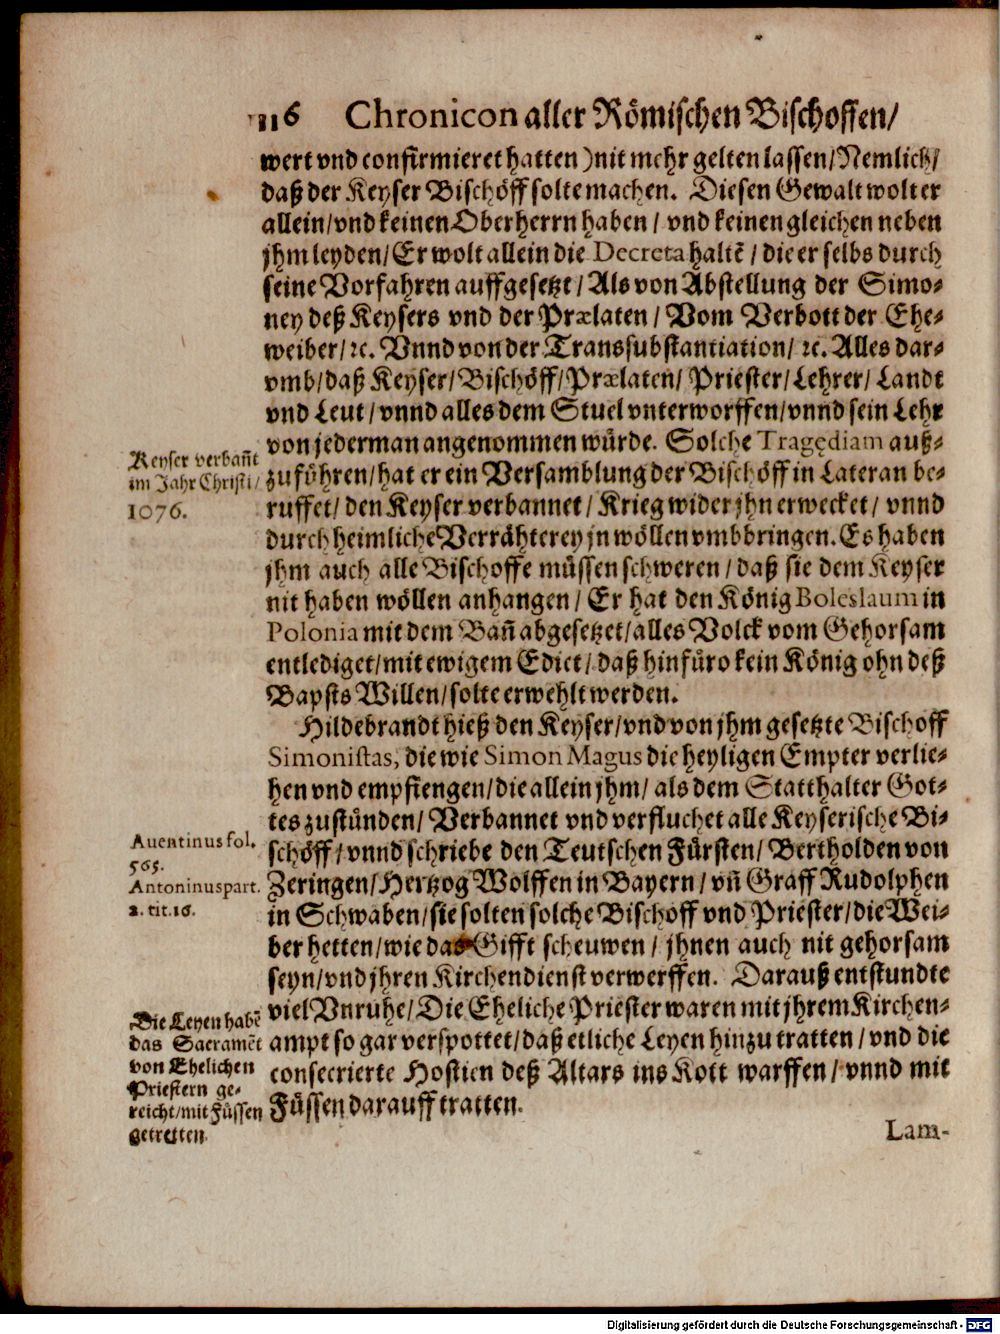 116 Chronicon aller Römischen Bischoffen/
wert vnd confirmieret hatten) nit mehr gelten lassen/ Nemlich/
daß der Keyser Bischöff solte machen. Diesen Gewalt wolt er
allein/ vnd keinen Oberherrn haben / vnd keinen gleichen neben
jhm leyden/ Er wolt allein die Decreta haltē / die er selbs durch
seine Vorfahren auffgesetzt / Als von Abstellung der Simo-
ney deß Keysers vnd der Prælaten / Vom Verbott der Ehe-
weiber/ ꝛc. Vnnd von der Transsubstantiation/ ꝛc. Alles dar-
vmb/ daß Keyser/ Bischöff/ Prælaten/ Priester/ Lehrer/ Landt
vnd Leut / vnnd alles dem Stuel vnterworffen/ vnnd sein Lehr
von jederman angenommen würde. Solche Tragędiam auß-
zuführen/ hat er ein Versamblung der Bischöff in Lateran be-
ruffet/ den Keyser verbannet / Krieg wider jhn erwecket / vnnd
durch heimliche Verrähterey jn wöllen vmbbringen. Es haben
jhm auch alle Bischoffe müssen schweren / daß sie dem Keyser
nit haben wöllen anhangen / Er hat den König Boleslaum in
Polonia mit dem Bañ abgesetzet/ alles Volck vom Gehorsam
entlediget/ mit ewigem Edict / daß hinfüro kein König ohn deß
Bapsts Willen/ solte erwehlt werden.
Keyser verbañt
im Jahr Christi/
1076.
Hildebrandt hieß den Keyser/ vnd von jhm gesetzte Bischoff
Simonistas, die wie Simon Magus die heyligen Empter verlie-
hen vnd empfiengen/ die allein jhm / als dem Statthalter Got-
tes zustünden/ Verbannet vnd verfluchet alle Keyserische Bi-
schöff / vnnd schriebe den Teutschen Fürsten/ Bertholden von
Zeringen/ Hertzog Wolffen in Bayern / vñ Graff Rudolphen
in Schwaben/ sie solten solche Bischoff vnd Priester/ die Wei-
ber hetten/ wie das Gifft scheuwen / jhnen auch nit gehorsam
seyn/ vnd jhren Kirchendienst verwerffen. Darauß entstundte
viel Vnruhe/ Die Eheliche Priester waren mit jhrem Kirchen-
ampt so gar verspottet/ daß etliche Leyen hinzu tratten / vnd die
consecrierte Hostien deß Altars ins Kott warffen / vnnd mit
Füssen darauff tratten.
Auentinus fol.
565.
Antoninus part.
2. tit. 16.
Die Leyen habē
das Sacramēt
von Ehelichen
Priestern ge-
reicht/ mit Füssen
getretten.
Lam-
Digitalisierung gefördert durch die Deutsche Forschungsgemeinschaft - DFG